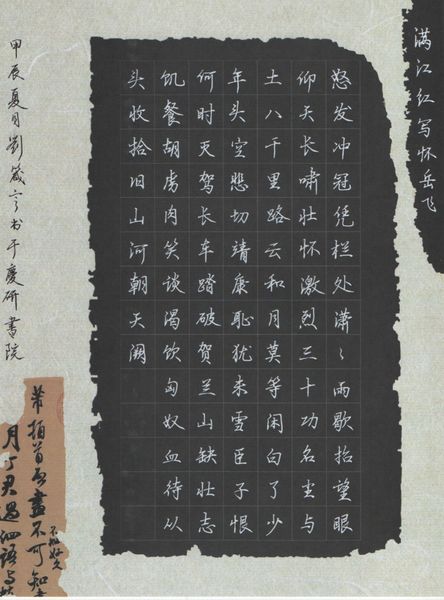 满江红写怀岳飞
怒发冲冠凭栏处潇〻雨歇抬望眼
仰天长啸壮怀激烈三十功名尘与
土八千里路云和月莫等闲白了少
年头空悲切靖康耻犹未雪臣子恨
何时灭驾长车踏破贺兰山缺壮志
饥餐胡虏肉笑谈渴饮匈奴血待从
头收拾旧山河朝天阙
甲辰夏月劉箴言书于慶研書院
盡不可知